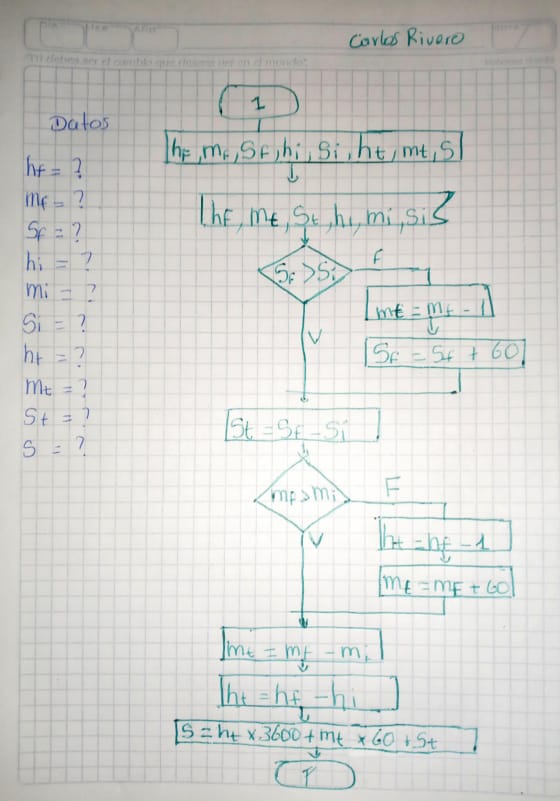 Carlos Rivero
"Tú debes ser el cambio que deseas ver en el mundo"
Datos
hf = ?
mf = ?
Sf = ?
hi = ?
mi = ?
Si = ?
ht = ?
mt = ?
St = ?
S = ?
1
hF, mf, SF, hi, Si, ht, mt, S
hf, mt, St, hi, mi, Si
Sf > Si
F
mt = mf - 1
Sf = Sf + 60
V
St = Sf - Si
mf > mi
F
ht = hf - 1
mt = mF + 60
V
mt = mf - mi
ht = hf - hi
S = ht x 3600 + mt x 60 + St
F